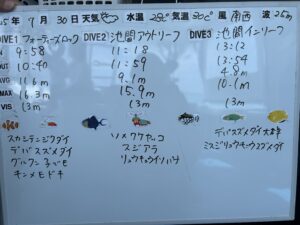 年 7 月 30 日 天気 水温 28℃ 気温 30℃ 風 南西 波 2.5m
DIVE1 フォーナーズロック DIVE2 池間アウトリーフ DIVE3 池間インリーフ
IN 9:58 11:18 13:12
OUT 10:40 11:59 13:54
AVG 11.6m 9.1m 4.8m
MAX 16.3m 15.9m 10.1m
VIS 13m 13m 13m
スカシテンジクダイ ソメワケヤッコ デバスズメダイ大群
デバスズメダイ スジアラ ミスジリュウキュウスズメダイ
グルクン子ども リュウキュウイソバナ
キンメモドキ